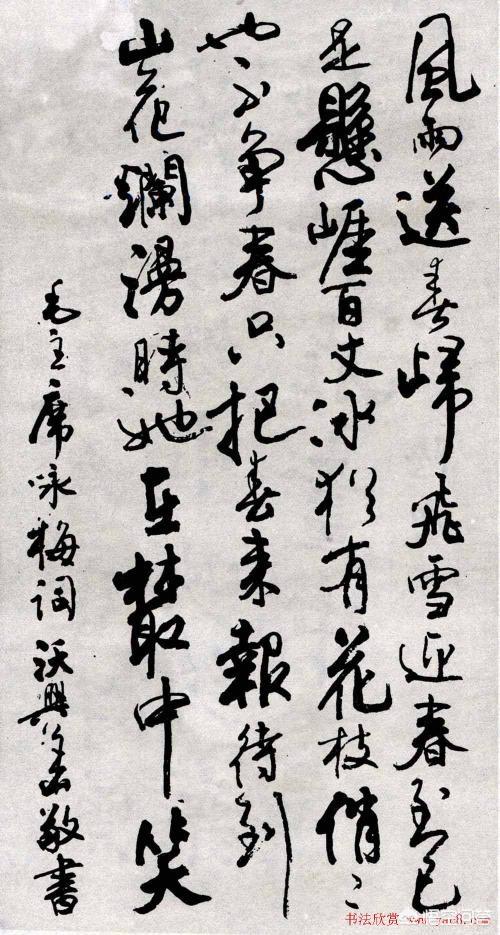 風雨送春歸飛雪迎春到已
是懸崖百丈冰猶有花枝俏〻
也不爭春只把春來報待到
山花爛漫時她在叢中笑
毛主席咏梅詞沃興華敬書
书法欣赏